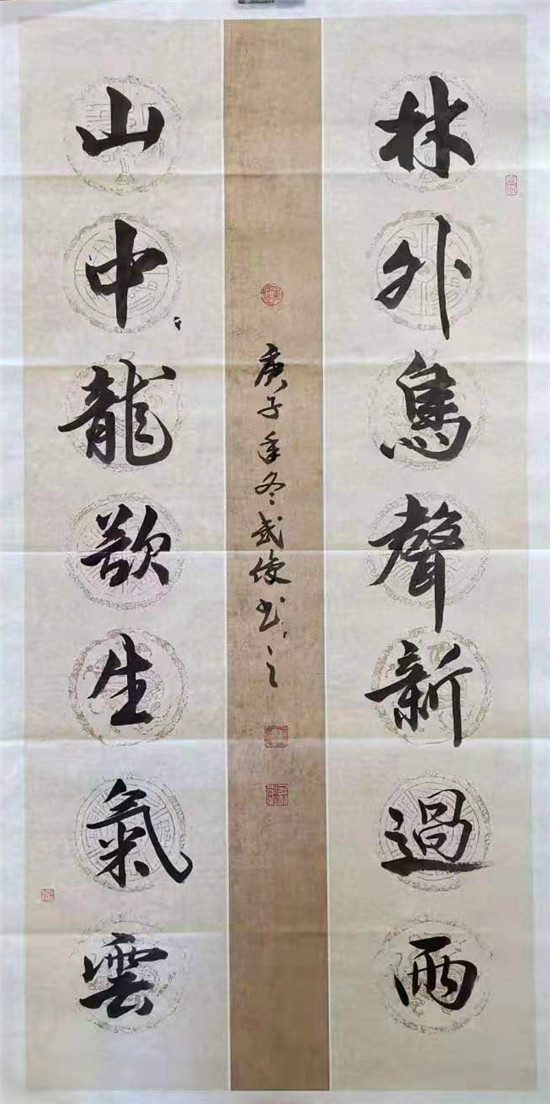 林外鳥聲新過雨
山中龍欲生氣雲
庚子年冬武俊书之